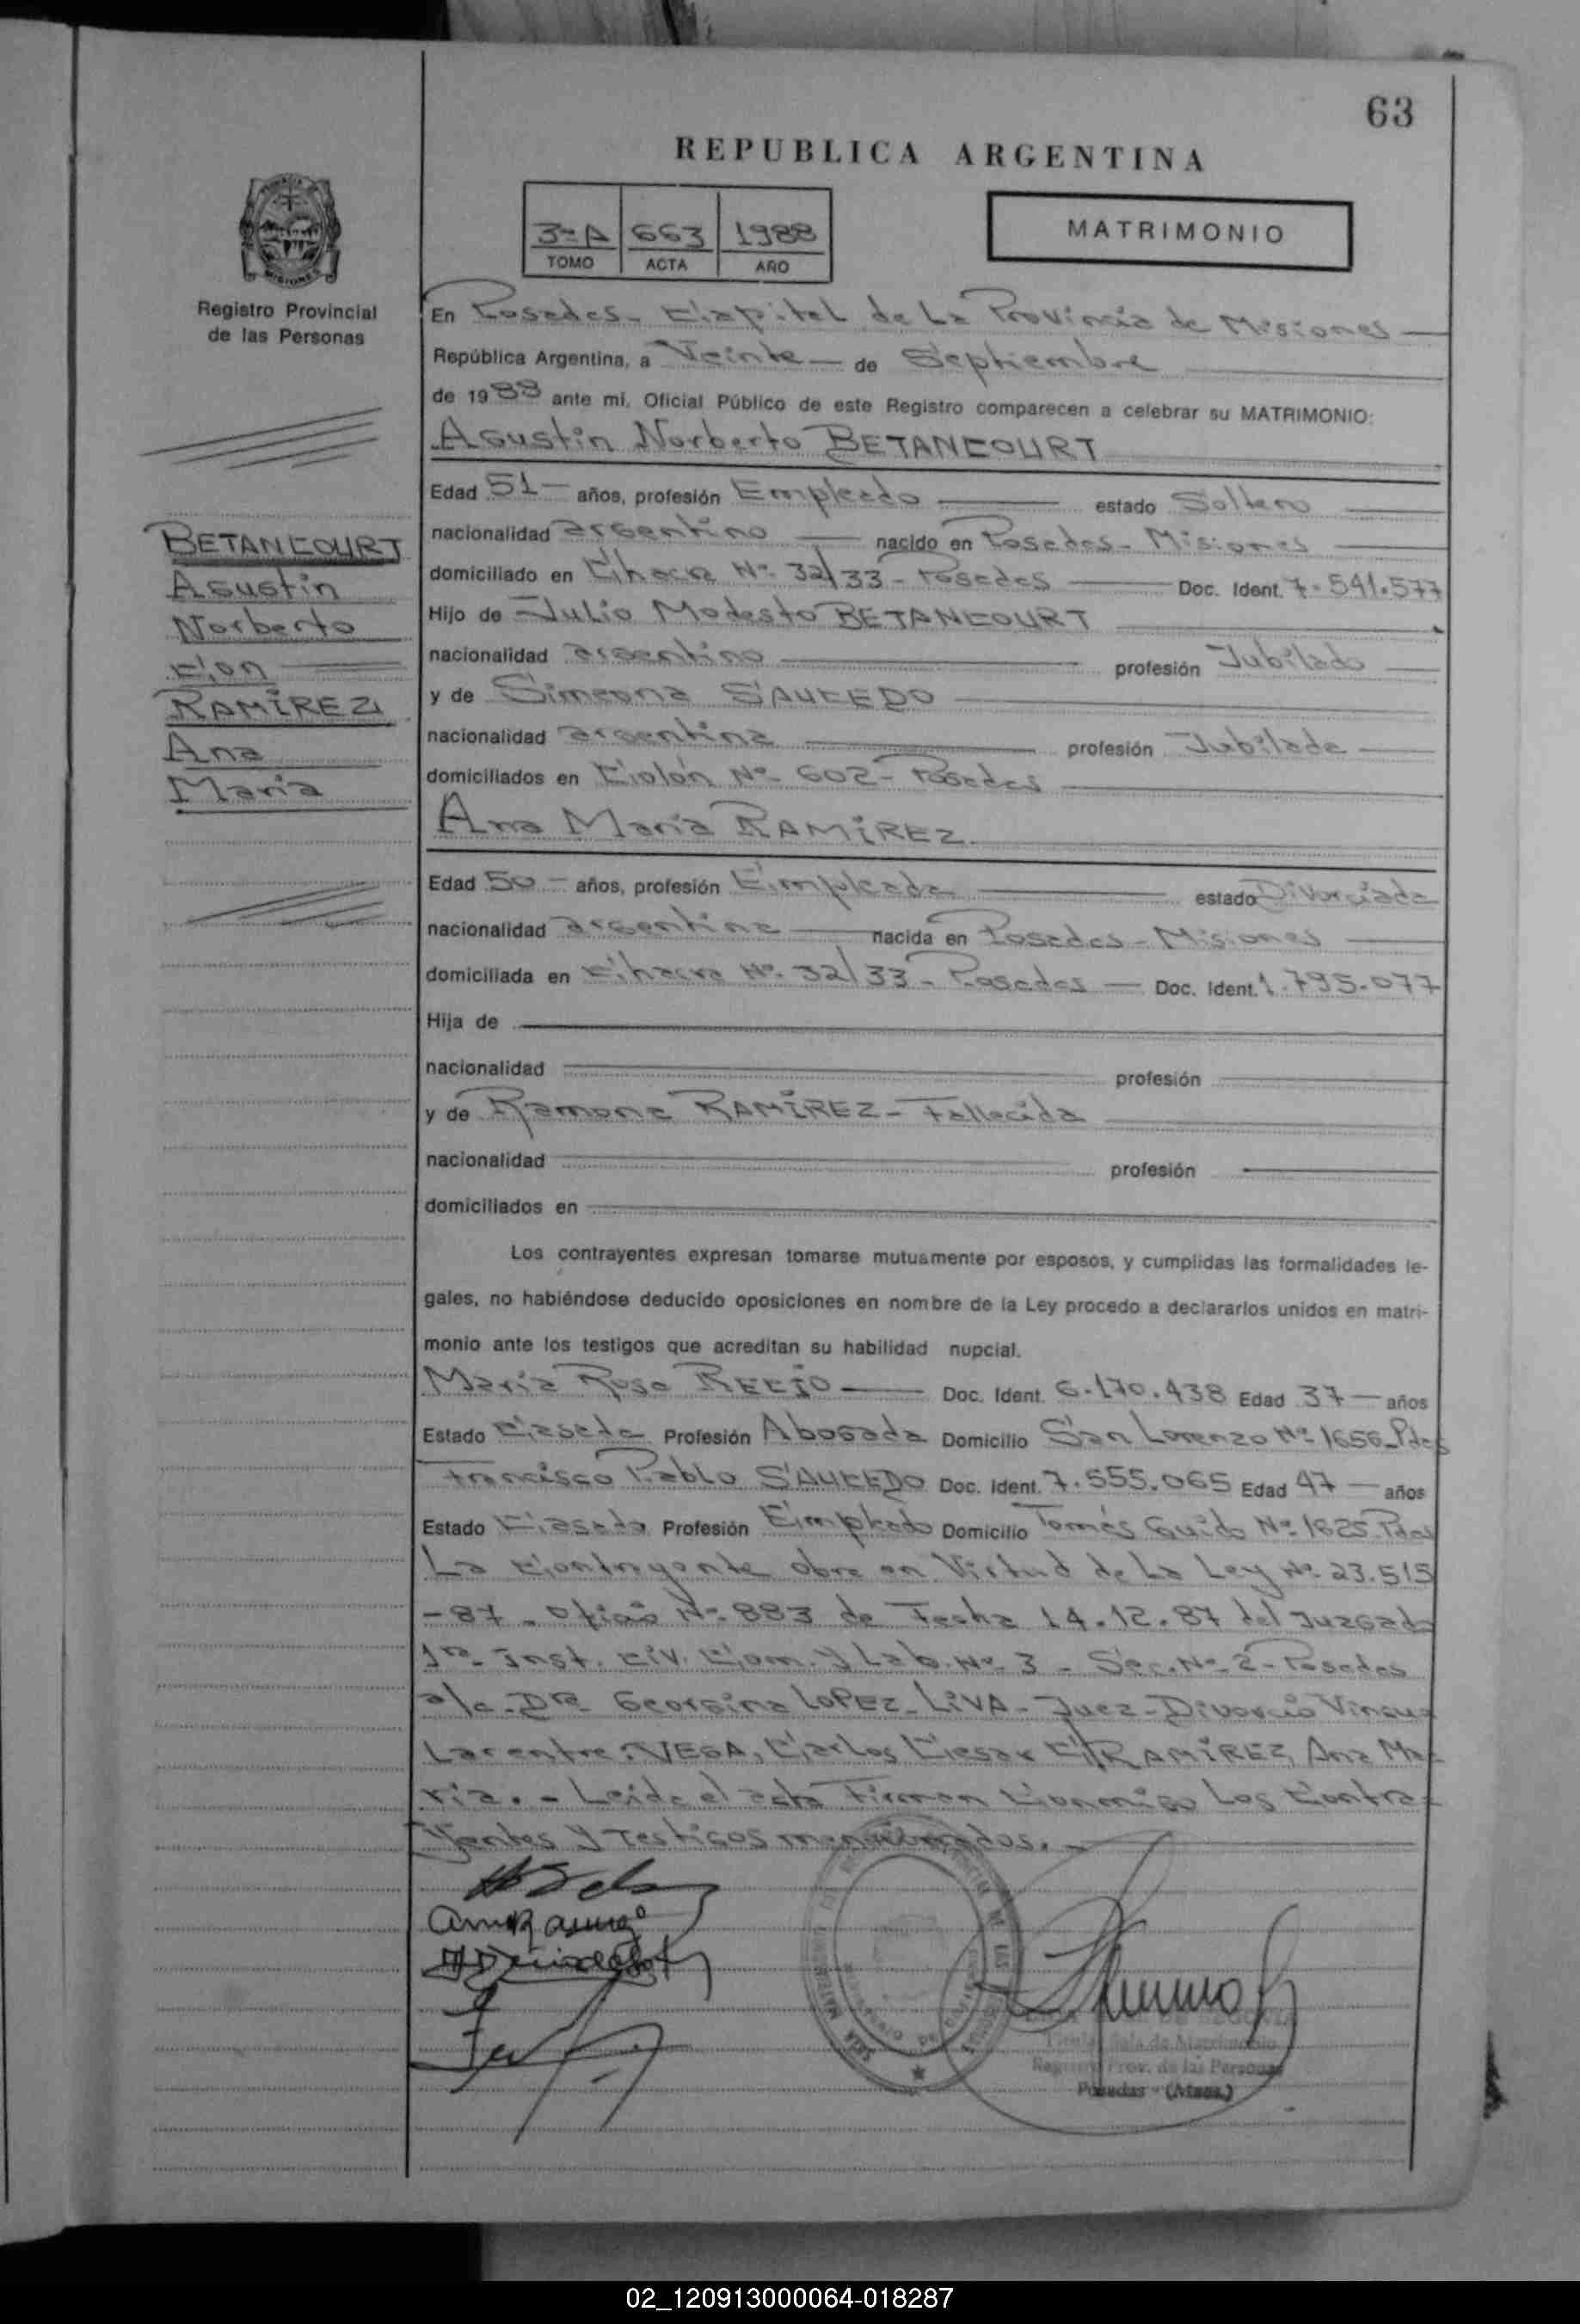 63
REPUBLICA ARGENTINA
3ºA 663 1988
TOMO ACTA AÑO
MATRIMONIO
Registro Provincial
de las Personas
En Posadas - Capital de La Provincia de Misiones
República Argentina, a Veinte de Septiembre
de 1988 ante mi, Oficial Público de este Registro comparecen a celebrar su MATRIMONIO:
Agustin Norberto BETANCOURT
Edad 51 años, profesión Empleado estado Soltero
nacionalidad argentino nacido en Posadas - Misiones
domiciliado en Chacra Nº 32/33 - Posadas Doc. Ident. 7.541.577
Hijo de Julio Modesto BETANCOURT
nacionalidad argentino profesión Jubilado
y de Simeona SAUCEDO
nacionalidad argentina profesión Jubilada
domiciliados en Colón Nº 602 - Posadas
Ana María RAMÍREZ
Edad 50 años, profesión Empleada estado Divorciada
nacionalidad argentina nacida en Posadas - Misiones
domiciliada en Chacra Nº 32/33 - Posadas Doc. Ident. 1.795.077
Hija de
nacionalidad profesión
y de Ramona RAMÍREZ - Fallecida
nacionalidad profesión
domiciliados en
Los contrayentes expresan tomarse mutuamente por esposos, y cumplidas las formalidades le-
gales, no habiéndose deducido oposiciones en nombre de la Ley procedo a declararlos unidos en matri-
monio ante los testigos que acreditan su habilidad nupcial.
María Rosa RECIO Doc. Ident. 6.170.438 Edad 37 años
Estado Casada Profesión Abogada Domicilio San Lorenzo Nº 1656 Pdas
Francisco Pablo SAUCEDO Doc. Ident. 7.555.065 Edad 47 años
Estado Casado Profesión Empleado Domicilio Tomás Guido Nº 1625 Pdas
La Contrayente obra en Virtud de La Ley Nº 23.515
-87 - Oficio Nº 883 de Fecha 14.12.87 del Juzgado
1ra Inst. Civ. Com. y Lab. Nº 3 - Sec. Nº 2 - Posadas
a/c. Dra Georgina LOPEZ LIVA - Juez - Divorcio Vincu
Lar entre: VEGA, Carlos Cesar C/ RAMÍREZ, Ana Ma-
ria. - Leida el acta Firman Conmigo Los Contra-
yentes y Testigos mencionados. -
BETANCOURT
Agustin
Norberto
Con
RAMÍREZ
Ana
María
Titular Sala de Matrimonio
Registro Prov. de las Personas
Posadas - (Mnes.)
02_120913000064-018287